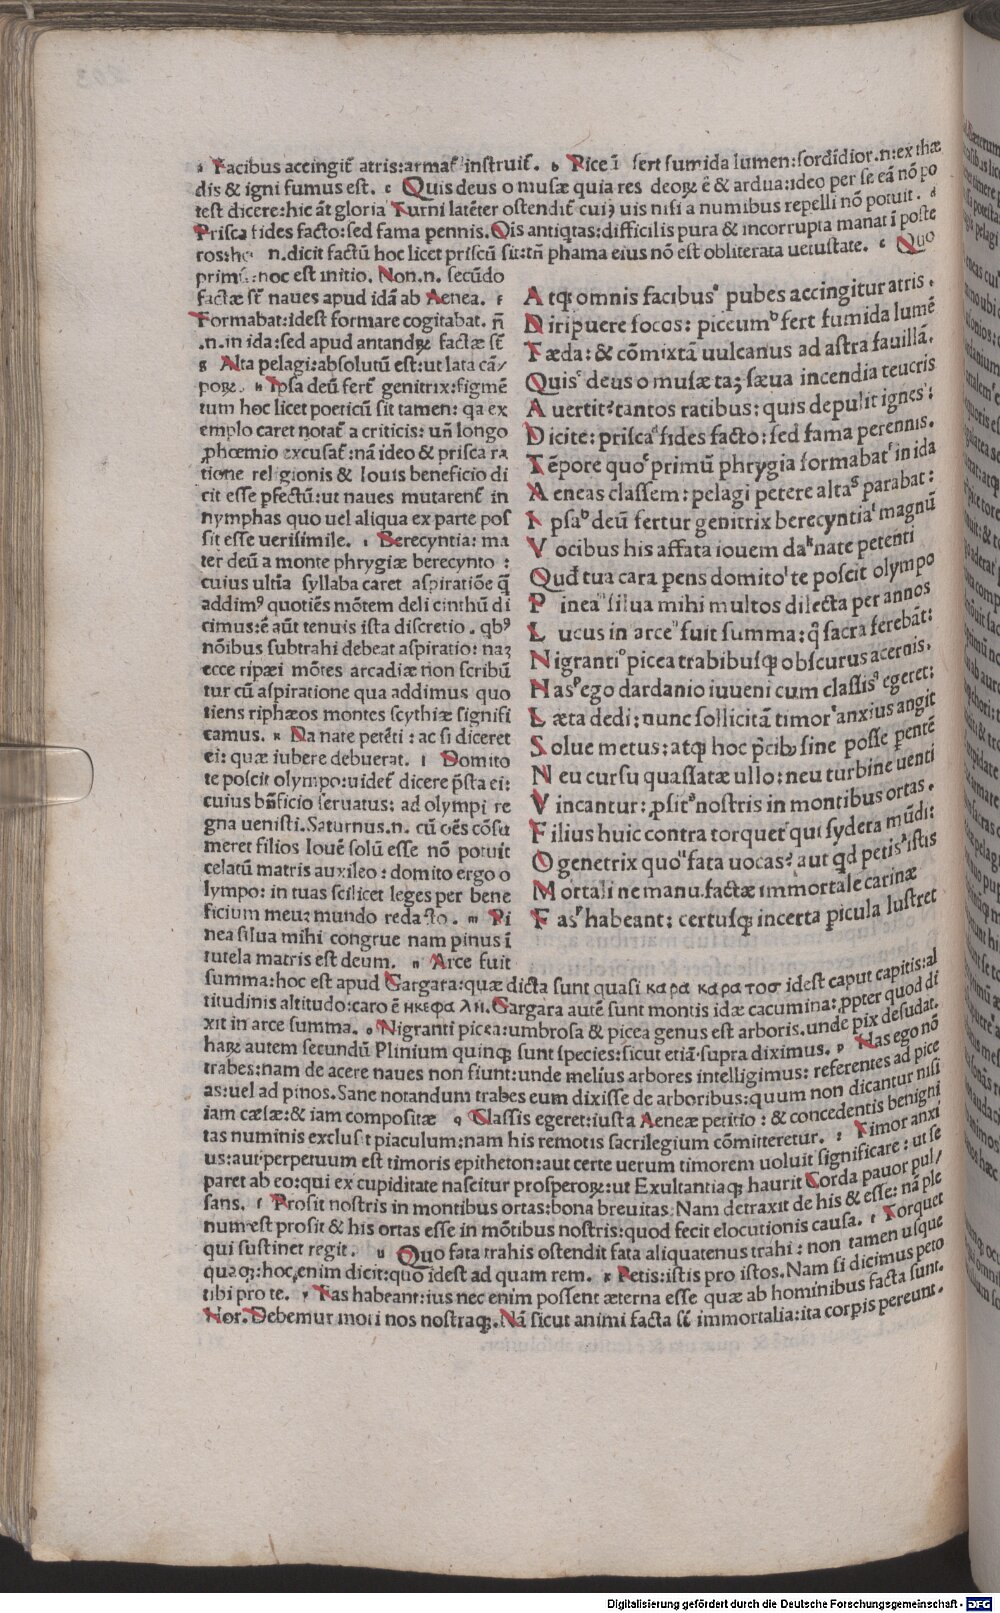 a Facibus accingit᷒ atris:armat᷒ instruit᷒. b Piceū fert fumida lumen:sordidior.n:ex thæ
dis & igni fumus est. c Quis deus o musæ quia res deoꝝ ē & ardua:ideo per se eā nō po
test dicere:hic āt gloria Turni latēter ostendit᷒ cuiꝰ uis nisi a numibus repelli nō potuit. d
Prisca fides facto:sed fama pennis.Qis antiqtas:difficilis pura & incorrupta manat ī poste
ros:hoc n.dicit factū hoc licet priscū sit:tn̄ phama eius nō est obliterata uetustate. e Quo
primū:hoc est initio. Non.n. secūdo
factæ st̄ naues apud idā ab Aenea. f
Formabat:idest formare cogitabat. n̄
.n. in ida:sed apud antandꝝ factæ st̄
g Alta pelagi:absolutū est:ut lata cā/
poꝝ. h Ipsa deū fert᷒ genitrix:figmē
tum hoc licet poeticū sit tamen: qa ex
emplo caret notat᷒ a criticis: un̄ longo
ꝓhœmio excusat᷒:nā ideo & prisca ra
tione religionis & Iouis beneficio di
cit esse pfectū:ut naues mutarent᷒ in
nymphas quo uel aliqua ex parte pos
sit esse uerisimile. i Berecyntia: ma
ter deū a monte phrygiæ berecynto :
cuius ultīa syllaba caret aspiratiōe q̄
addimꝰ quotiēs mōtem deli cinthū di
cimus:ē aūt tenuis ista discretio. qbꝰ
nōibus subtrahi debeat aspiratio: naꝫ
ecce ripæi mōtes arcadiæ non scribū
tur cū aspiratione qua addimus quo
tiens riphæos montes scythiæ signifi
camus. k Da nate petēti : ac si diceret
ei: quæ iubere debuerat. l Domito
te poscit olympo:uidet᷒ dicere p̄sta ei:
cuius bn̄ficio seruatus: ad olympi re
gna uenisti.Saturnus.n. cū oēs cōsu
meret filios Iouē solū esse nō potuit
celatū matris auxileo: domito ergo o
lympo: in tuas scilicet leges per bene
ficium meuꝫ mundo redacto. m Pi
nea silua mihi congrue nam pinus ī
tutela matris est deum. n Arce fuit
Atqꝫ omnis facibusᵃ pubes accingitur atris.
Diripuere focos: piceumᵇ fert fumida lumē
Tæda: & cōmixtā uulcanus ad astra fauillā.
Quisᶜ deus o musæ taꝫ sæua incendia teucris
Auertit? tantos ratibus: quis depulit ignes:
Dicite: priscaᵈ fides facto: sed fama perennis.
Tēpore quoᵉ primū phrygia formabatᶠ in ida
Aeneas classem: pelagi petere altaᵍ parabat:
Ipsaʰ deū fertur genitrix berecyntiaⁱ magnū
Vocibus his affata iouem daᵏ nate petenti
Qud̄ tua cara pens domitoˡ te poscit olympo
Pineaᵐ silua mihi multos dilecta per annos
Lucus in arceⁿ fuit summa: q̄ sacra ferebāt:
Nigrantiᵒ picea trabibusqꝫ obscurus acernis.
Hasᵖ ego dardanio iuueni cum classis egeret:
Læta dedi: nunc sollicitā timorʳ anxius angit
Solue metus: atqꝫ hoc p̄cibꝰ sine posse pentē
Neu cursu quassatæ ullo: neu turbine uenti
Vincantur: ꝓsitˢ nostris in montibus ortas.
Filius huic contra torquetᵗ qui sydera mūdi:
O genetrix quoᵘ fata uocas? aut qd petisˣ istis
Mortali ne manu factæ immortale carinæ
Fasʸ habeant: certusqꝫ incerta picula lustret
summa:hoc est apud Gargara:quæ dicta sunt quasi καρα καρατοσ idest caput capitis:al
titudinis altitudo:caro ē ηκεφα λη.Gargara autē sunt montis idæ cacumina:ꝓpter quod di
xit in arce summa. o Nigranti picea:umbrosa & picea genus est arboris.unde pix desudat.
haꝝ autem secundū Plinium quinqꝫ sunt species:sicut etiā supra diximus. p Has ego nō
trabes:nam de acere naues non fiunt:unde melius arbores intelligimus: referentes ad pice
as:uel ad pinos.Sane notandum trabes eum dixisse de arboribus:quum non dicantur nisi
iam cæsæ:& iam compositæ q Classis egeret:iusta Aeneæ petitio : & concedentis benigni
tas numinis exclusit piaculum:nam his remotis sacrilegium cōmitteretur. r Timor anxi
us:aut perpetuum est timoris epitheton:aut certe uerum timorem uoluit significare : ut se
paret ab eo:qui ex cupiditate nascitur prosperoꝝ:ut Exultantiaqꝫ haurit Corda pauor pul/
sans. s Prosit nostris in montibus ortas:bona breuitas.Nam detraxit de his & esse: nā ple
num est prosit & his ortas esse in mōtibus nostris:quod fecit elocutionis causa. t Torquet
qui sustinet regit. u Quo fata trahis ostendit fata aliquatenus trahi : non tamen usque
quaqꝫ:hoc enim dicit:quo idest ad quam rem. x Petis:istis pro istos.Nam si dicimus peto
tibi pro te. y Fas habeant:ius nec enim possent æterna esse quæ ab hominibus facta sunt.
Hor.Debemur morti nos nostraqꝫ.Nā sicut animi facta st̄ immortalia:ita corpis pereunt.
Digitalisierung gefördert durch die Deutsche Forschungsgemeinschaft - DFG